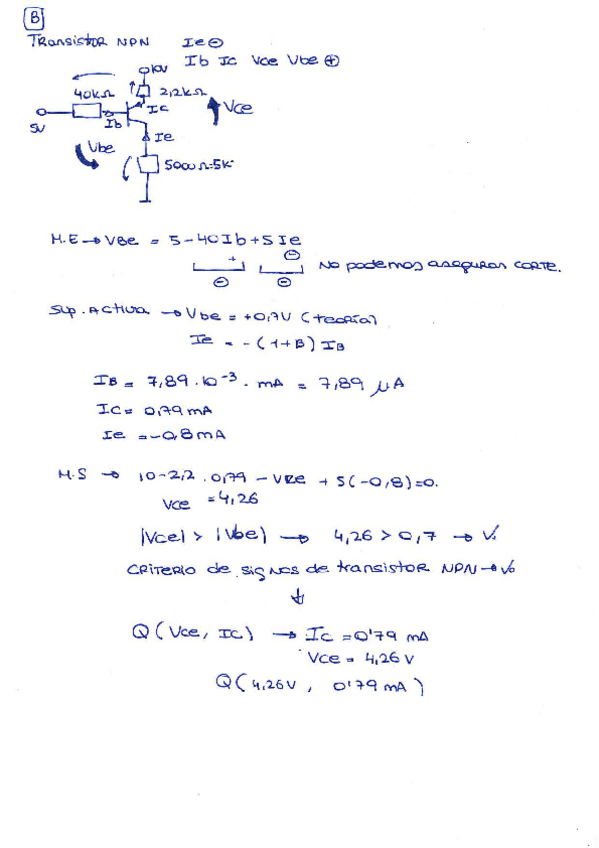 B
Transistor NPN Ie ⊖
Ib Ic Vce Vbe ⊕
10V
40kΩ 2,2kΩ
Ic Vce
5V Ib
Ie
Vbe
5000Ω=5k
M.E → VBe = 5-40Ib+5Ie
+ ⊖
⊖ ⊖ No podemos asegurar CORTE.
Sup. Activa → Vbe = +0,7V (teoría)
Ie = -(1+B) IB
IB = 7,89·10⁻³ · mA = 7,89 μA
Ic = 0,79 mA
Ie = -0,8 mA
M.S → 10-2,2 · 0,79 - Vce + 5(-0,8)=0.
Vce = 4,26
|Vce| > |Vbe| → 4,26 > 0,7 → V.
CRITERIO de signos de transistor NPN → Vo
↓
Q (Vce, Ic) → Ic = 0'79 mA
Vce = 4,26 V
Q (4,26V, 0'79 mA)